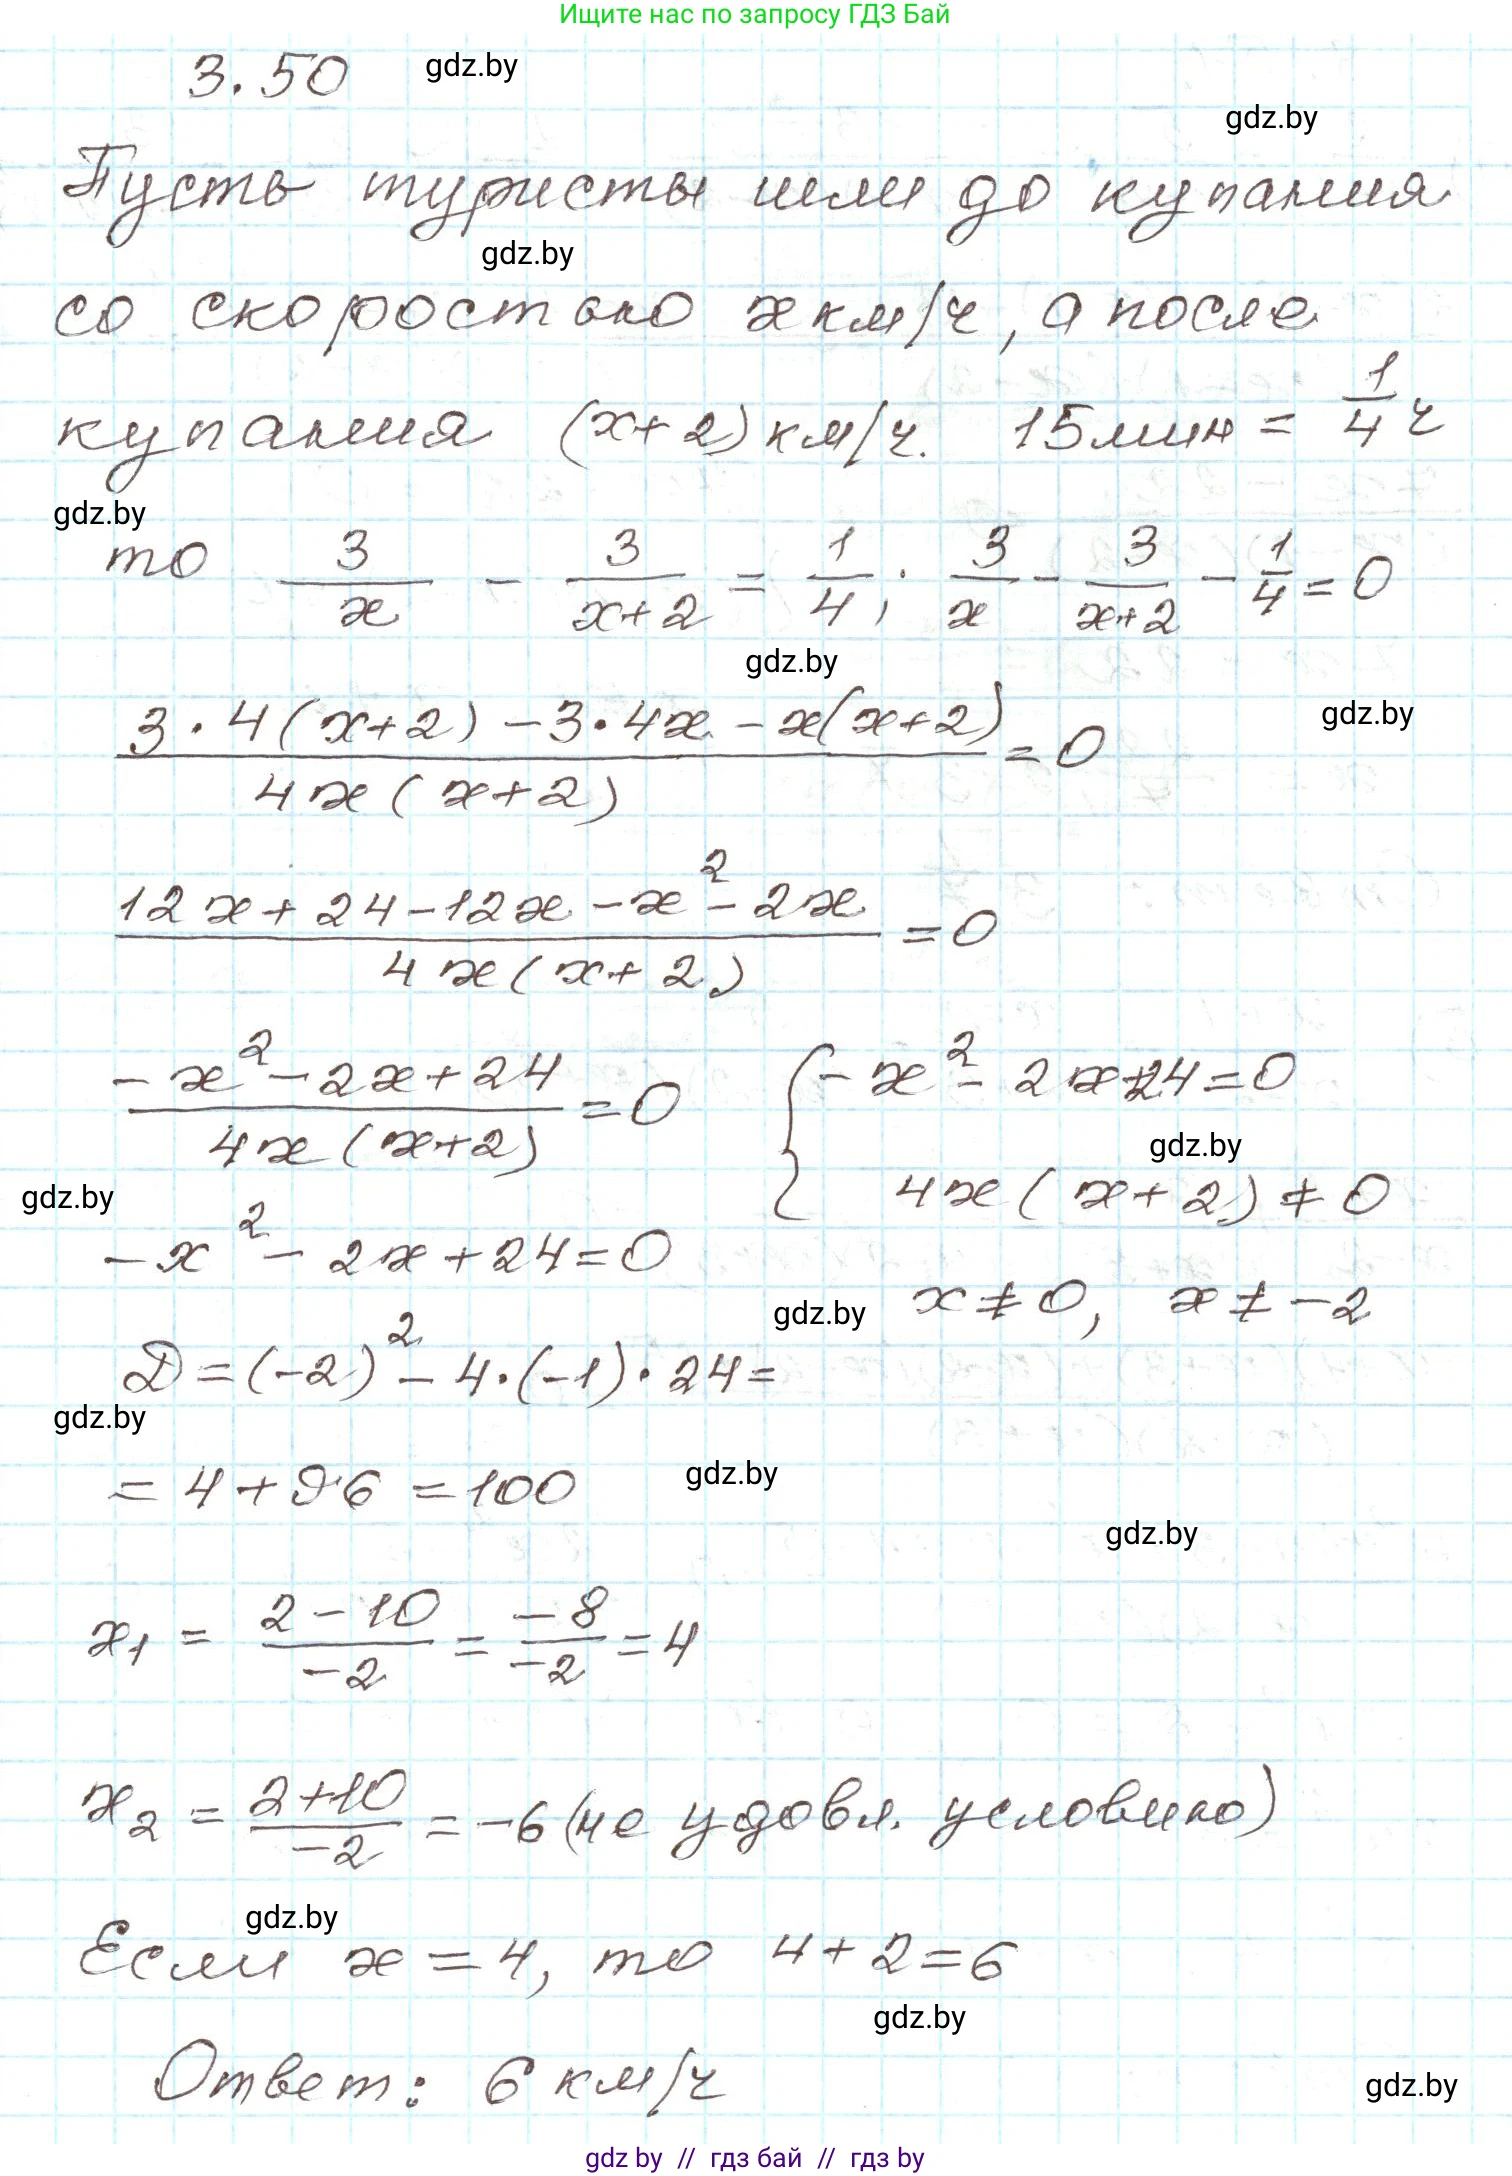 Ищите нас по запросу ГДЗ Бай
3.50 gdz.by
gdz.by
Пусть туристы шли до купания
gdz.by
со скоростью x км/ч, а после
купания (x+2) км/ч. 15 мин = 1/4 ч
gdz.by
то 3/x - 3/(x+2) = 1/4; 3/x - 3/(x+2) - 1/4 = 0
gdz.by
gdz.by
(3·4(x+2) - 3·4x - x(x+2))/(4x(x+2)) = 0
(12x + 24 - 12x - x² - 2x)/(4x(x+2)) = 0
(-x² - 2x + 24)/(4x(x+2)) = 0 { -x² - 2x + 24 = 0
gdz.by
4x(x+2) ≠ 0
gdz.by
-x² - 2x + 24 = 0
gdz.by x ≠ 0, x ≠ -2
D = (-2)² - 4·(-1)·24 =
gdz.by
= 4 + 96 = 100 gdz.by
gdz.by
x₁ = (2-10)/(-2) = (-8)/(-2) = 4
x₂ = (2+10)/(-2) = -6 (не удовл. условию)
gdz.by
Если x = 4, то 4 + 2 = 6
gdz.by
Ответ: 6 км/ч
gdz.by
gdz by // гдз бай // гдз by